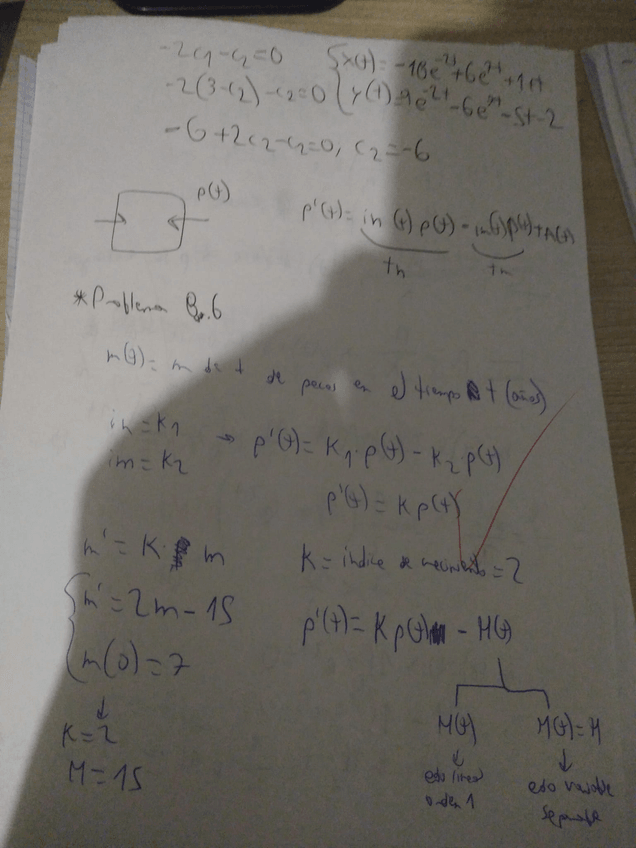 -2c₁-c₂=0
-2(3-c₂)-c₂=0
-6+2c₂-c₂=0, c₂=-6
{x(t)=-18e^-2t+6e^
y(t)=9e^-2t-6e^ -5t-2
p(t)
p'(t)= in (t) p(t) - im(t)p(t)+A(t)
tn tm
*Problema 6
m(t)= m de t de peces en el tiempo t (años)
in=K₁
im=K₂
→ p'(t)= K₁·p(t)-K₂·p(t)
p'(t)= Kp(t)
m'=K· m
K= índice de crecimiento=2
{m'=2m-15
m(0)=7
p'(t)= Kp(t) - M(t)
↓
K=2
M=15
M(t) M(t)=M
↓ ↓
edo lineal orden 1
edo variable separable